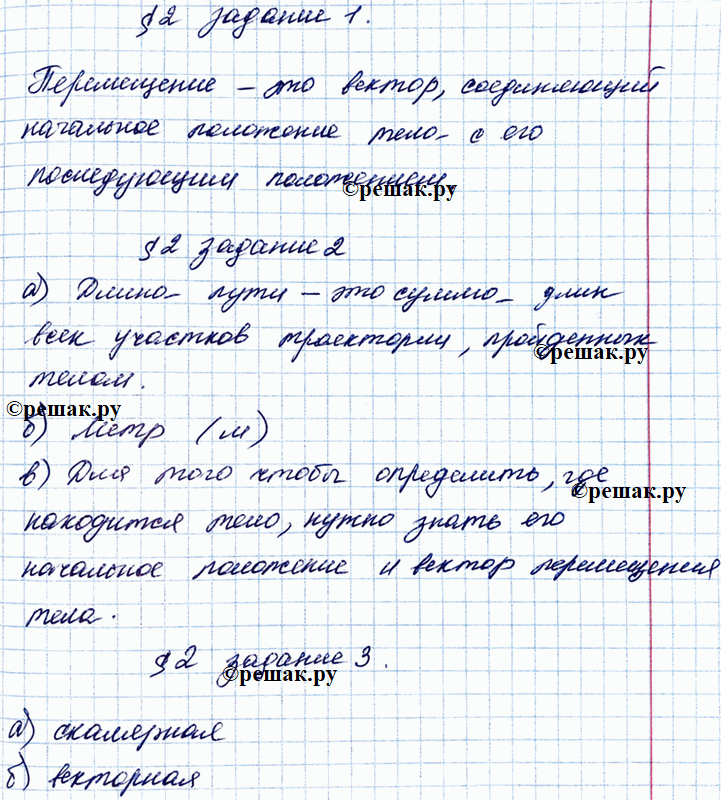 §2 задание 1.
Перемещение – это вектор, соединяющий
начальное положение тела с его
последующим положением.
©решак.ру
§2 задание 2
а) Длина пути – это сумма длин
всех участков траектории, пройденных
©решак.ру
телом.
©решак.ру
б) Метр (м)
в) Для того чтобы определить, где
©решак.ру
находится тело, нужно знать его
начальное положение и вектор перемещения
тела.
§2 задание 3.
©решак.ру
а) скалярная
б) векторная